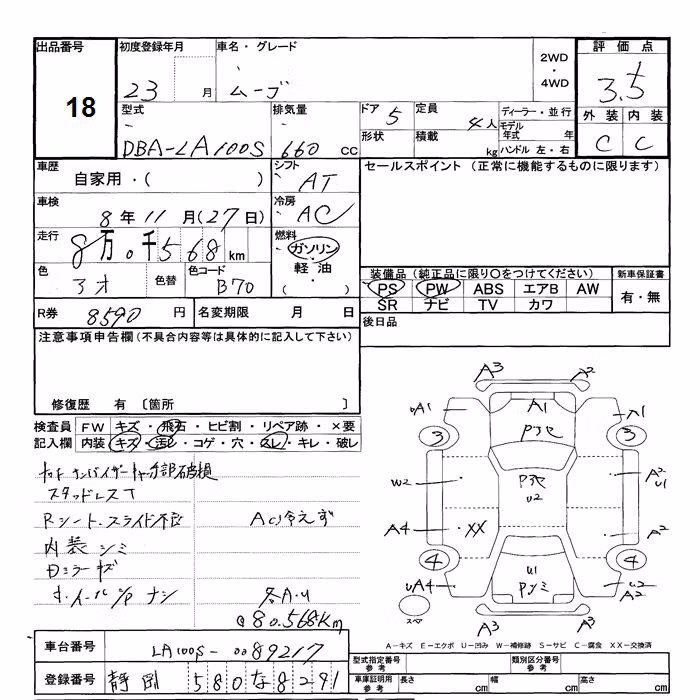 出品番号 18
初度登録年月 23 月
車名・グレード ムーヴ
2WD・4WD
評価点 3.5
外装 C 内装 C
型式 DBA-LA100S
排気量 660 cc
ドア 5
形状
定員 4人
積載 kg
ディーラー・並行
モデル年式 年
ハンドル 左・右
車歴 自家用・( )
シフト AT
セールスポイント (正常に機能するものに限ります)
車検 8年11月(27日)
冷房 AC
走行 8万0千568km
燃料 ガソリン・軽油・( )
色 アオ 色替
色コード B70
装備品 (純正品に限り○をつけてください)
PS PW ABS エアB AW
SR ナビ TV カワ
新車保証書 有・無
R券 8590円
名変期限 月 日
後日品
注意事項申告欄 (不具合内容等は具体的に記入して下さい)
修復歴 有 〔箇所 〕
検査員記入欄
FW キズ・飛石・ヒビ割・リペア跡・×要
内装 キズ・汚れ・コゲ・穴・スレ・キレ・破レ
スタッドレスT
Rシート スライド不良 AC冷えず
内装シミ
Dミラーキズ
ホイールC/P ナシ 各A.U
@80.568Km
車台番号 LA100S-0089217
登録番号 静岡 580 な 8291
A3 A2
UA1 A1 A1
3 P多 3
W2 P多 U2 A2 U1
A4 XX A2
4 U1 4
UA4 P多 U2 A2
スペア A3 A3
A-キズ E-エクボ U-凹み W-補修跡 S-サビ C-腐食 XX-交換済
型式指定番号 参考
類別区分番号 参考
車庫証明用 参考 長さ cm 幅 cm 高さ cm